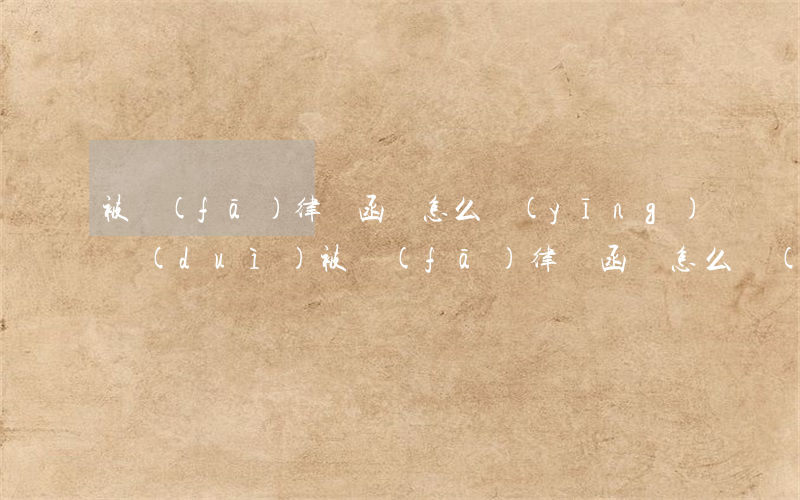 被 (fā)律 函 怎么 (yīng)
(duì)被 (fā)律 函 怎么 (